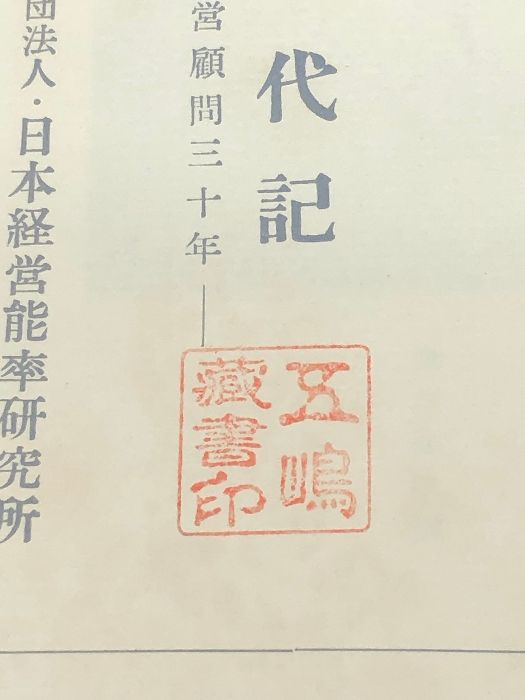 代記
営顧問三十年――
団法人・日本経営能率研究所
五嶋
藏書印